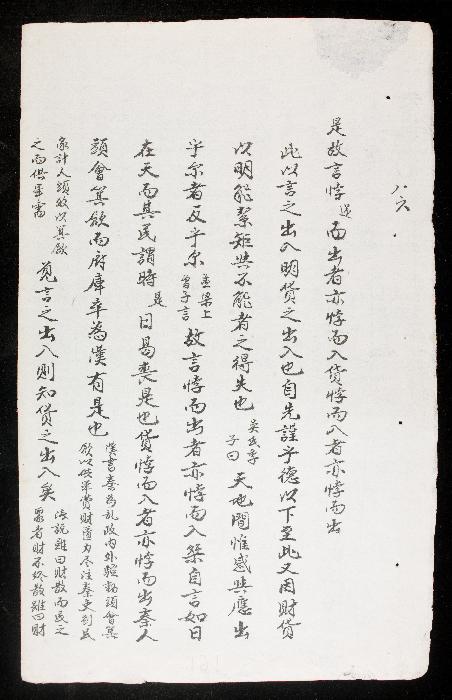 八六
是故言悖逆而出者亦悖而入貨悖而入者亦悖而出
此以言之出入明貨之出入也自先謹乎德以下至此又因財貨
以明能絜矩與不能者之得失也吳氏季
子曰天地間惟感與應出
乎尔者反乎尔孟梁上
曾子言故言悖而出者亦悖而入桀自言如日
在天而其民謂時是日曷喪是也貨悖而入者亦悖而出秦人
頭會箕歛而府庫卒為漢有是也漢書秦為乱政内外騷動頭會箕
歛以供軍費財匱力尽注秦吏到民
家計人頭数以箕歛
之而供軍需言之出入則知貨之出入矣浅説雖曰財散而民之
聚者財不終散雖曰財